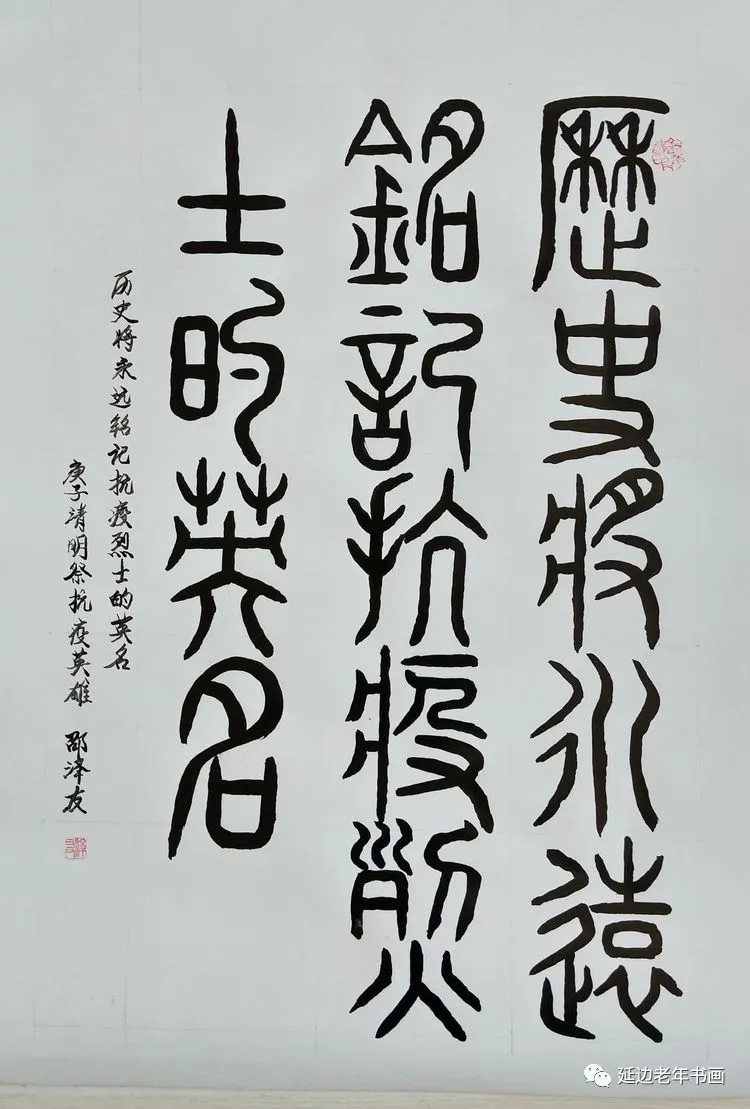 歷史將永遠
銘記抗疫烈
士的英名
历史将永远铭记抗疫烈士的英名
庚子清明祭抗疫英雄 邵泽友
延边老年书画